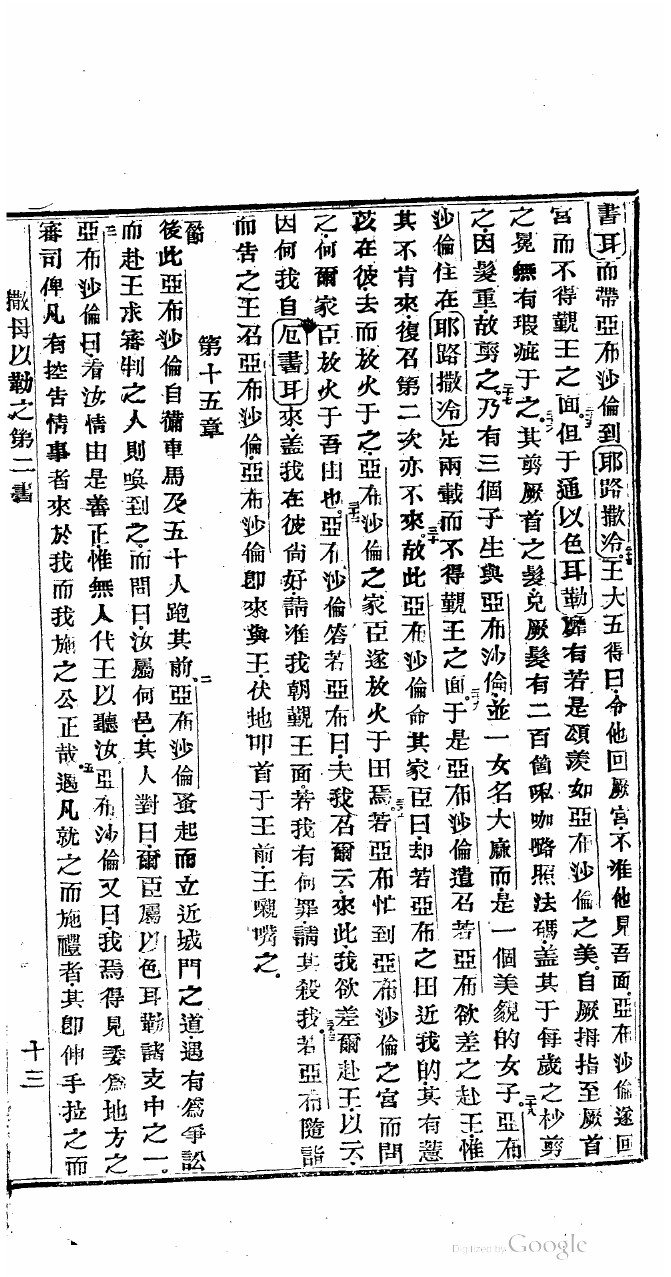 書耳而帶亞布沙倫到耶路撒冷。王大五得曰。令他回厥宮。不准他見吾面。亞布沙倫遂回
宮而不得觀王之面。但于通以色耳勒無有若是頌羨如亞布沙倫之美。自厥拇指至厥首
之冕無有瑕疵于之。其剪厥首之髮兌厥髮有二百箇㖿咖嘧照法碼。盖其于每歲之杪剪
之。因髮重。故剪之。乃有三個子生與亞布沙倫。並一女名大麻而。是一個美貌的女子。亞布
沙倫住在耶路撒冷足兩載而不得觀王之面。于是亞布沙倫遣召若亞布欲差之赴王。惟
其不肯來。復召第二次亦不來。故此亞布沙倫命其家臣曰。却若亞布之田近我的其有薏
苡在彼。去而放火于之。亞布沙倫之家臣遂放火于田焉。若亞布忙到亞布沙倫之宮而問
之。何爾家臣放火于吾田也。亞布沙倫答若亞布曰。夫我召爾云。來此。我欲差爾赴王。以云。
因何我自厄書耳來。盖我在彼尚好。請准我朝觀王面。若我有何罪。請其殺我。若亞布隨詣
而告之王召亞布沙倫。亞布沙倫卽來與王。伏地叩首于王前。王嚫嘴之。
第十五章
後此亞布沙倫自備車馬及五十人跑其前。亞布沙倫蚤起而立近城門之道。遇有爲爭訟
而赴王求審判之人則喚到之。而問曰。汝屬何邑。其人對曰。爾臣屬以色耳勒諸支中之一。
亞布沙倫曰。看汝情由是善正。惟無人代王以聽汝。亞布沙倫又曰。我焉得見委爲地方之
審司俾凡有控告情事者來於我而我施之公正哉。遇凡就之而施禮者。其卽伸手拉之而
撒母以勒之第二書 十三
Digitized by Google